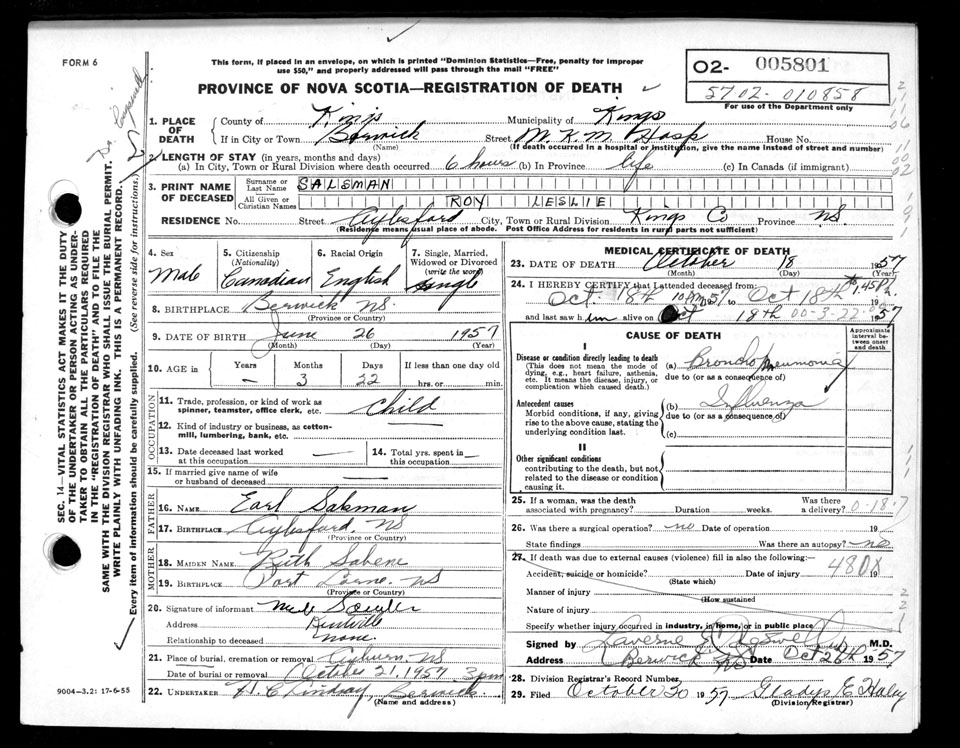 FORM 6
This form, if placed in an envelope, on which is printed "Dominion Statistics—Free, penalty for improper
use $50," and properly addressed will pass through the mail "FREE"
O2- 005801
5702- 010858
For use of the Department only
PROVINCE OF NOVA SCOTIA—REGISTRATION OF DEATH
1. PLACE OF DEATH
County of Kings Municipality of Kings
If in City or Town Berwick Street W.K.M. Hosp House No.
(Name) (If death occurred in a hospital or institution, give the name instead of street and number)
2. LENGTH OF STAY (in years, months and days)
(a) In City, Town or Rural Division where death occurred 6 hours (b) In Province life (c) In Canada (if immigrant)
3. PRINT NAME OF DECEASED
Surname or Last Name SALSMAN
All Given or Christian Names ROY LESLIE
RESIDENCE No. Street Aylesford City, Town or Rural Division Kings Co Province NS
(Residence means usual place of abode. Post Office Address for residents in rural parts not sufficient)
4. Sex
Male
5. Citizenship
(Nationality)
Canadian
6. Racial Origin
English
7. Single, Married,
Widowed or Divorced
(write the word)
Single
8. BIRTHPLACE Berwick NS.
(Province or Country)
9. DATE OF BIRTH June 26 1957
(Month) (Day) (Year)
10. AGE in Years Months Days If less than one day old
— 3 22 hrs. or min.
OCCUPATION
11. Trade, profession, or kind of work as
spinner, teamster, office clerk, etc. Child
12. Kind of industry or business, as cotton-
mill, lumbering, bank, etc. —
13. Date deceased last worked
at this occupation —
14. Total yrs. spent in
this occupation —
15. If married give name of wife
or husband of deceased
FATHER
16. NAME Earl Salsman
17. BIRTHPLACE Aylesford, NS
(Province or Country)
MOTHER
18. MAIDEN NAME Ruth
19. BIRTHPLACE Port NS
(Province or Country)
20. Signature of informant
Address Kentville
Relationship to deceased none.
21. Place of burial, cremation or removal Auburn NS
Date of burial or removal October 21, 1957 3pm
22. UNDERTAKER H C Lindsay Berwick
(Name and address)
9004-3.2: 17-6-55
MEDICAL CERTIFICATE OF DEATH
23. DATE OF DEATH October 18 1957
(Month) (Day) (Year)
24. I HEREBY CERTIFY that I attended deceased from:
Oct. 18th 57 to Oct 18th 19
and last saw him alive on Oct 18th 1957
00-3-22-00
CAUSE OF DEATH
Approximate interval between onset and death
I
Disease or condition directly leading to death
(This does not mean the mode of
dying, e.g., heart failure, asthenia,
etc. It means the disease, injury, or
complication which caused death.)
(a) Bronchopneumonia
due to (or as a consequence of)
Antecedent causes
Morbid conditions, if any, giving
rise to the above cause, stating the
underlying condition last.
(b) Influenza
due to (or as a consequence of)
(c)
II
Other significant conditions
contributing to the death, but not
related to the disease or condition
causing it.
25. If a woman, was the death
associated with pregnancy? Duration weeks. Was there a delivery?
0-18-7
26. Was there a surgical operation? no Date of operation 19
State findings Was there an autopsy? no
27. If death was due to external causes (violence) fill in also the following:—
Accident, suicide or homicide? Date of injury 19
(State which)
480X
Manner of injury
(How sustained
Nature of injury
Specify whether injury occurred in industry, in home, or in public place
Signed by Laverne M.D.
Address Berwick NS Date Oct 26th 1957
28. Division Registrar's Record Number
29. Filed October 30 1957 Gladys E Haley
(Division Registrar)
SEC. 14—VITAL STATISTICS ACT MAKES IT THE DUTY
OF THE UNDERTAKER OR PERSON ACTING AS UNDER-
TAKER TO OBTAIN ALL THE PARTICULARS REQUIRED
IN THE "REGISTRATION OF DEATH" AND TO FILE THE
SAME WITH THE DIVISION REGISTRAR WHO SHALL ISSUE THE BURIAL PERMIT.
WRITE PLAINLY WITH UNFADING INK. THIS IS A PERMANENT RECORD.
Every item of information should be carefully supplied. (See reverse side for instructions.)